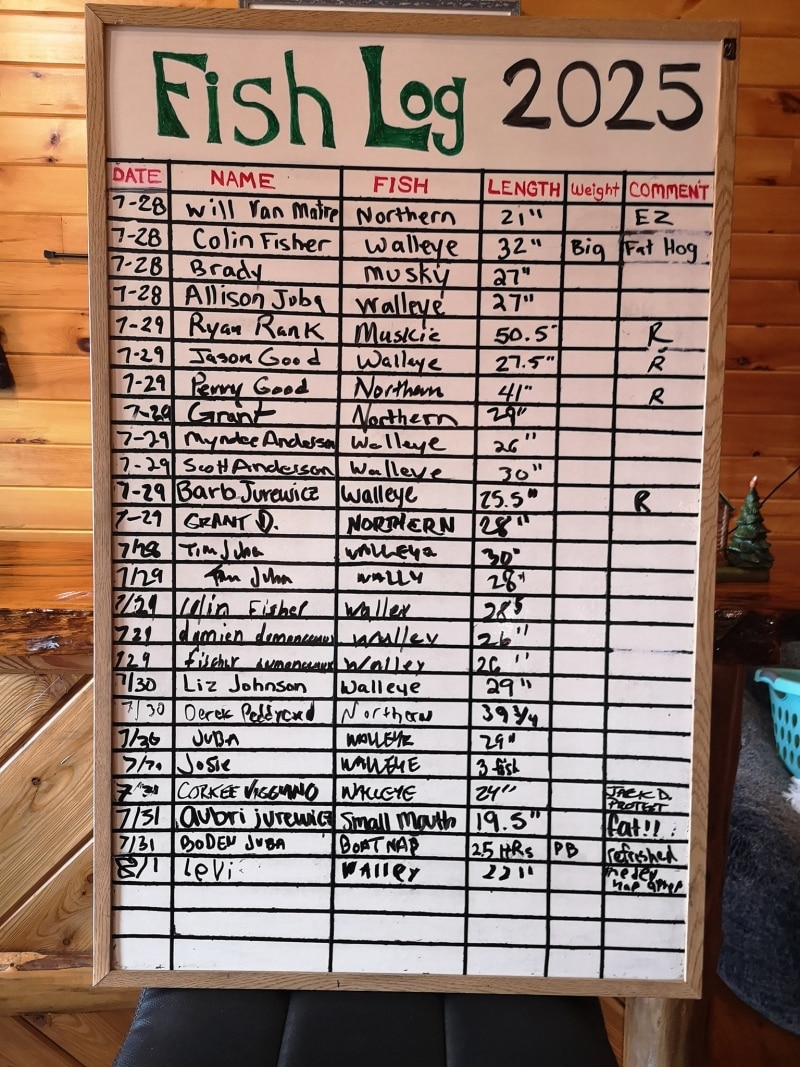 Fish Log 2025
DATE NAME FISH LENGTH Weight COMMENT
7-28 Will Van Matre Northern 21" EZ
7-28 Colin Fisher Walleye 32" Big Fat Hog
7-28 Brady musky 27"
7-28 Allison Juba Walleye 27"
7-29 Ryan Rank Muskie 50.5" R
7-29 Jason Good Walleye 27.5" R
7-29 Perry Good Northern 41" R
7-29 Grant Northern 29"
7-29 Myndee Anderson Walleye 26"
7-29 Scott Anderson Walleye 30"
7-29 Barb Jurewicz Walleye 25.5" R
7-29 GRANT D. NORTHERN 28"
7/28 Tim Juba 30"
7/29 Juba WALLY 28"
7/29 Colin Fisher Walley 28.5
729 damien Walley 26"
729 fischer Walley 26"
7/30 Liz Johnson Walleye 29"
7/30 Derek Northern 39 3/4
7/30 JUBA WALLEYE 29"
Josie WALLEYE 3 fish
7/31 CORKEE WALLEYE 24" JACK D. PROTEST
7/31 Aubri jurewicz Small Mouth 19.5" fat!!
7/31 BODEN JUBA BOAT NAP 2.5 HRs PB refreshed
8/1 Levi Walley 22"